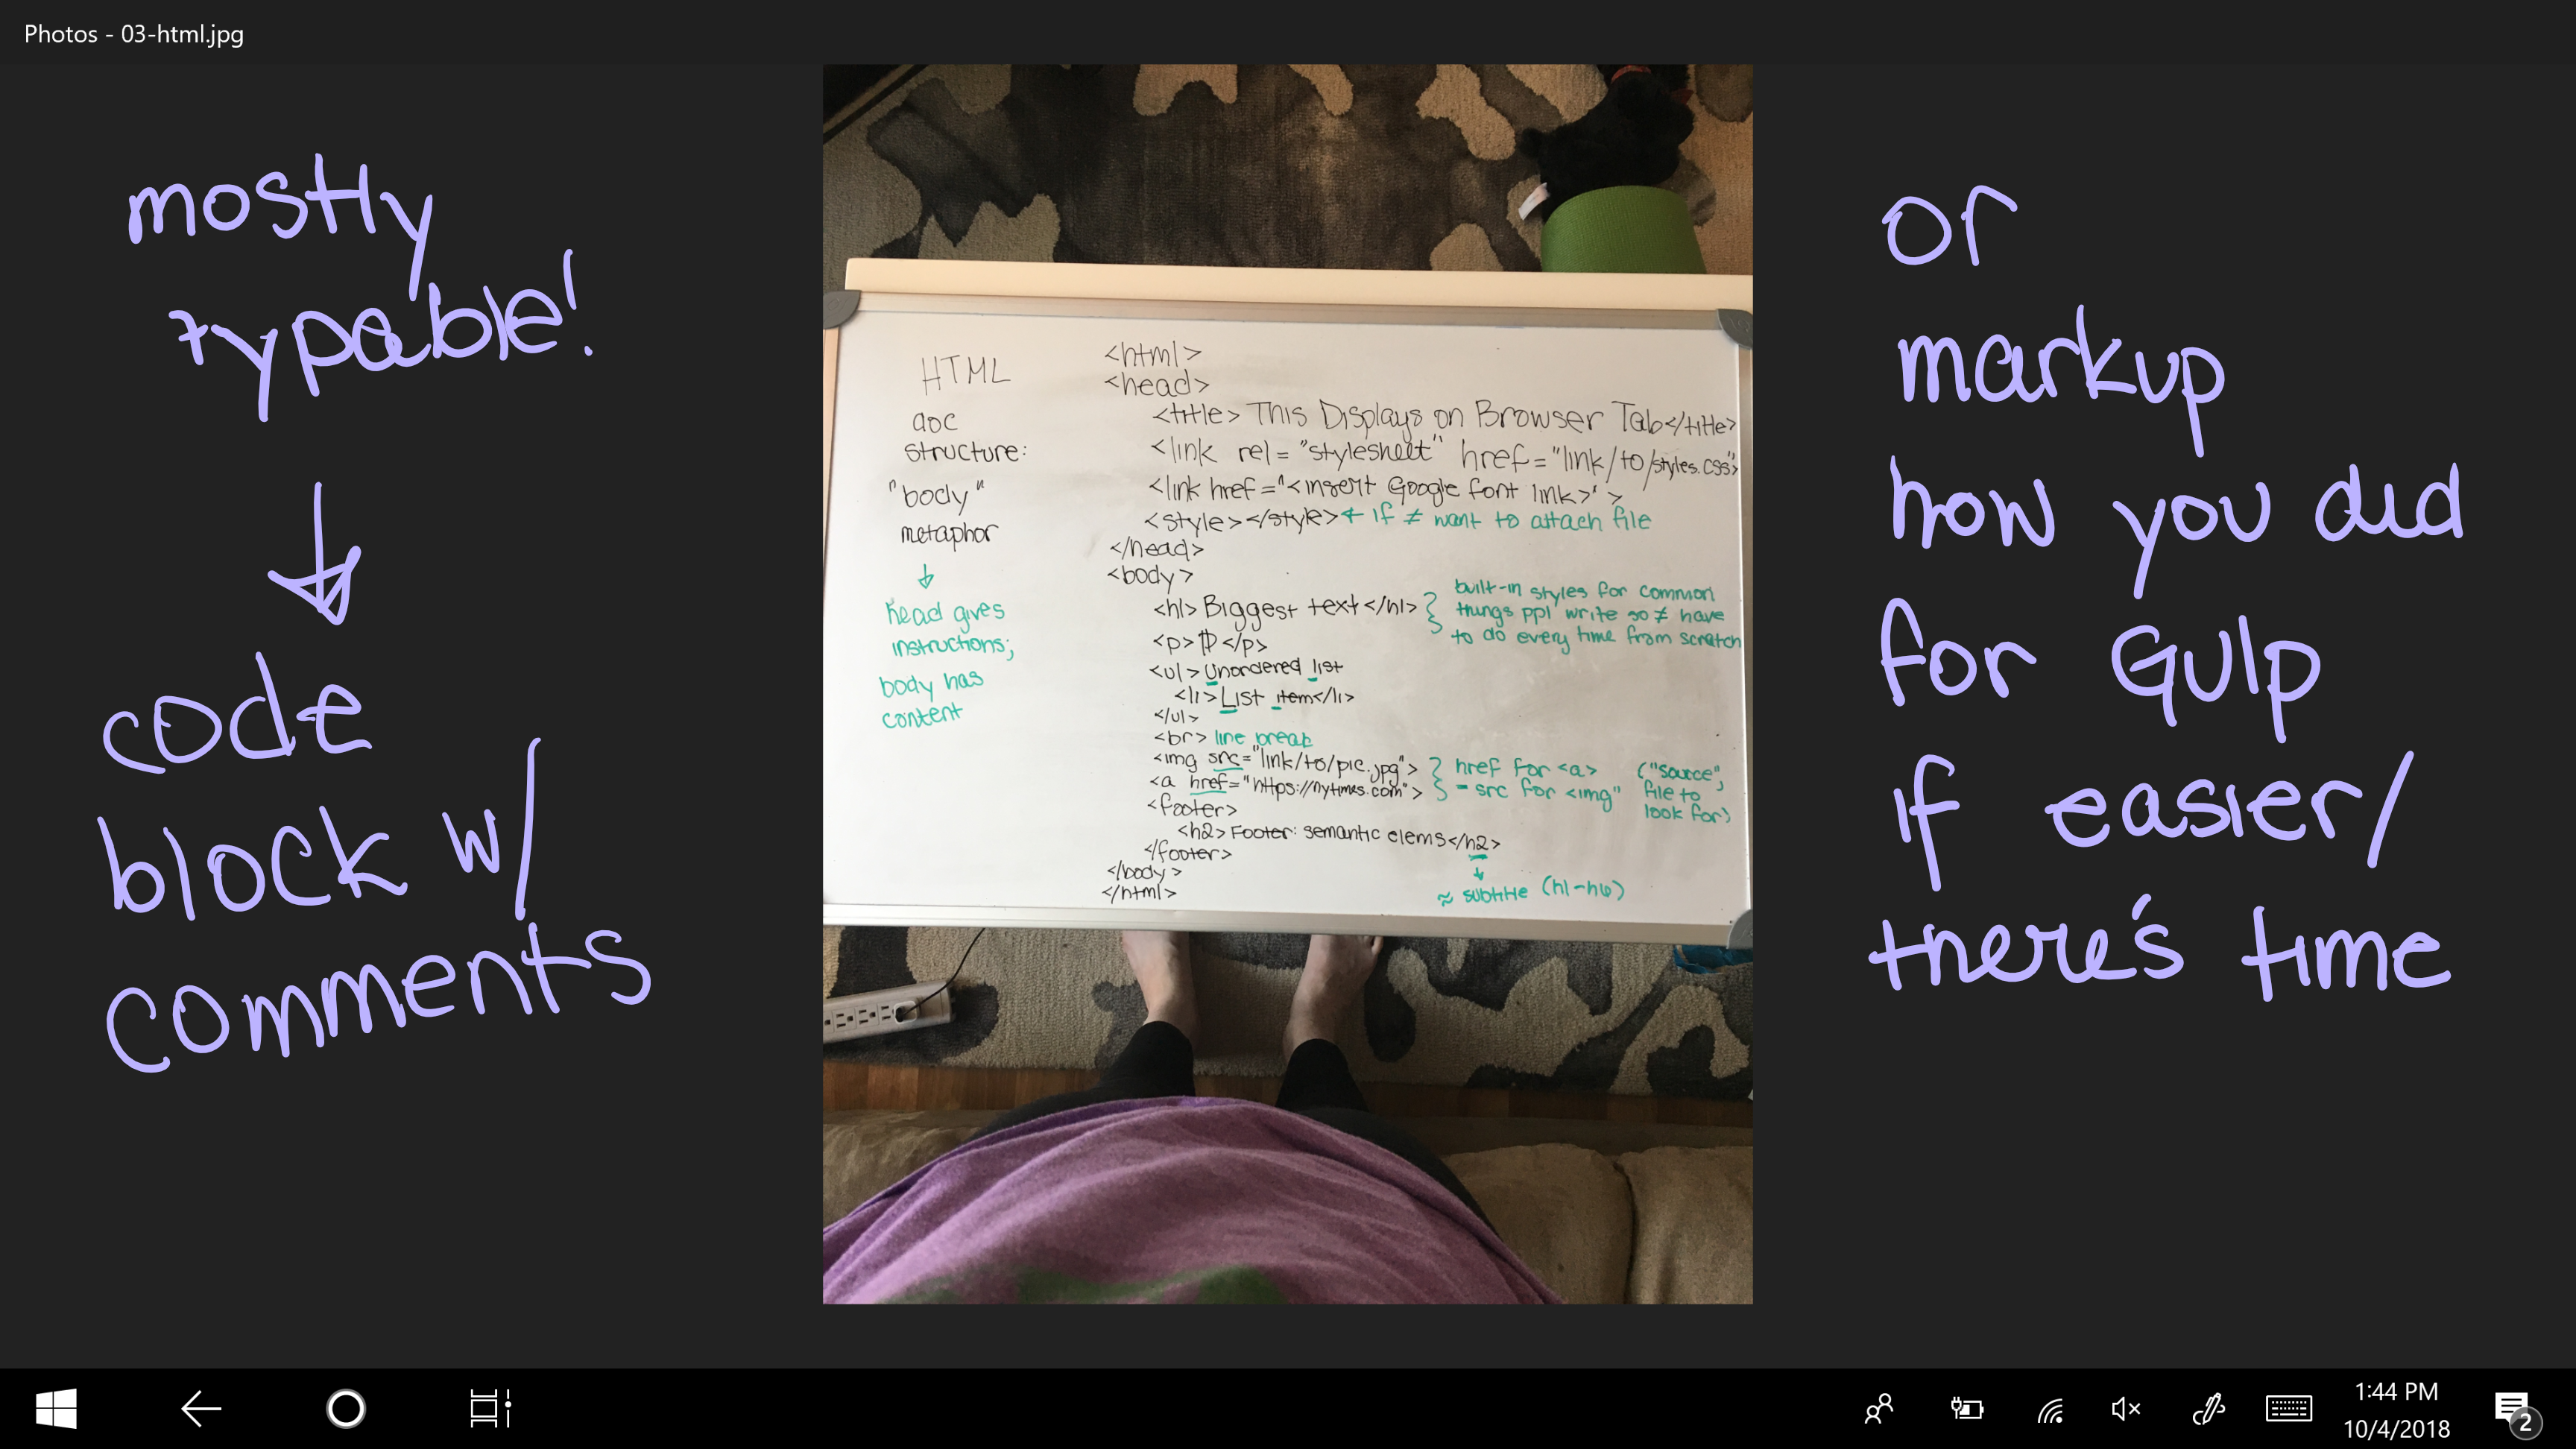 Photos - 03-html.jpg
mostly
typable!
↓
code
block w/
comments
HTML
doc
structure:
"body"
metaphor
↓
head gives
instructions;
body has
content
<html>
<head>
<title> This Displays on Browser Tab</title>
<link rel="stylesheet" href="link/to/styles.css">
<link href="<insert Google font link>">
<style></style> ← if ≠ want to attach file
</head>
<body>
<h1> Biggest text </h1> } built-in styles for common
things ppl write so ≠ have
to do every time from scratch
<p> ¶ </p>
<ul> Unordered list
<li> List item</li>
</ul>
<br> line break
<img src="link/to/pic.jpg"> } href for <a> ("source",
<a href="https://nytimes.com"> - src for <img" file to
look for)
<footer>
<h2> Footer: semantic elems</h2>
</footer>
↓
≈ subtitle (h1-h6)
</body>
</html>
or
markup
how you did
for Gulp
if easier/
there's time
1:44 PM
10/4/2018
2